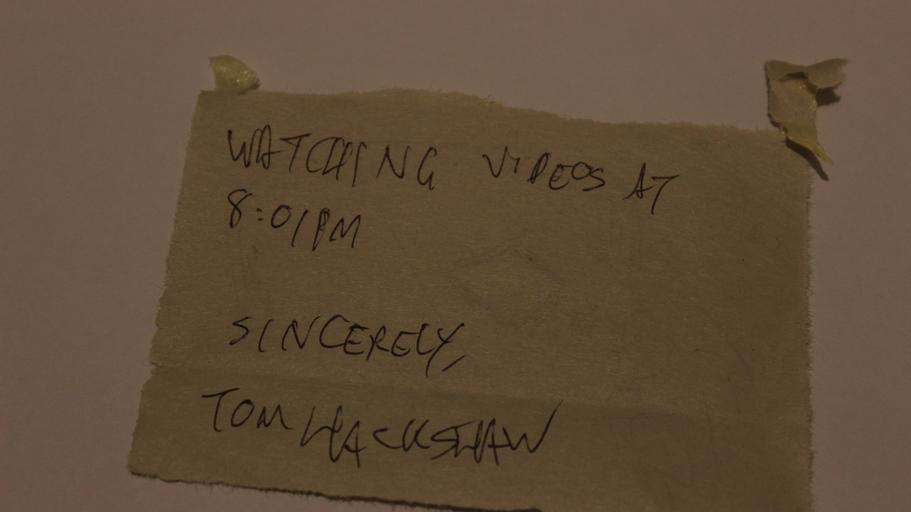 WATCHING VIDEOS AT
8:01PM
SINCERELY,
TOM HACKSHAW